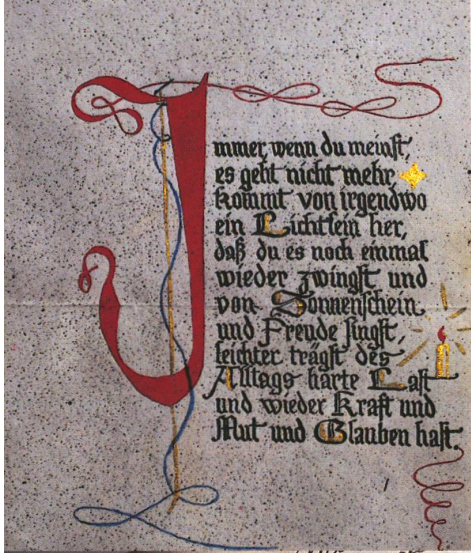 Immer, wenn du meinst,
es geht nicht mehr,
kommt von irgendwo
ein Lichtlein her,
daß du es noch einmal
wieder zwingst und
von Sonnenschein
und Freude singst,
leichter trägst des
Alltags harte Last
und wieder Kraft und
Mut und Glauben hast.